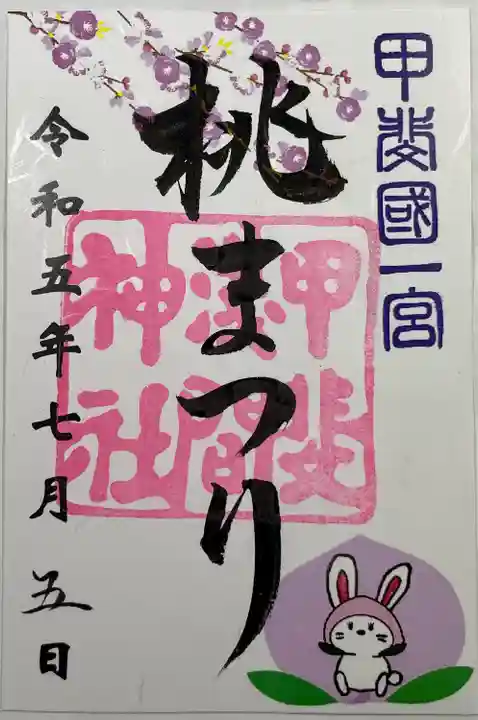 甲斐國一宮
桃まつり
甲斐
浅間
神社
令和五年七月五日